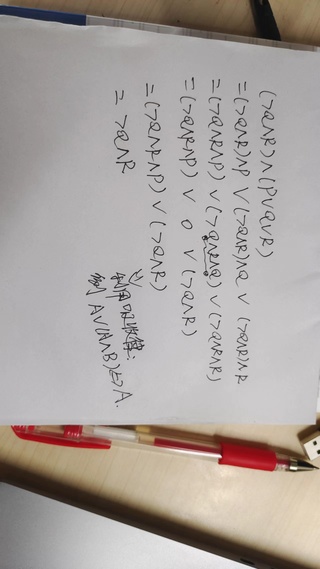 (¬Q∧R)∧(P∨Q∨R)
=(¬Q∧R)∧P ∨ (¬Q∧R)∧Q ∨ (¬Q∧R)∧R
=(¬Q∧R∧P) ∨ (¬Q∧R∧Q) ∨ (¬Q∧R∧R)
=(¬Q∧R∧P) ∨ 0 ∨ (¬Q∧R)
=(¬Q∧R∧P) ∨ (¬Q∧R)
= ¬Q∧R
利用吸收律:
A∨(A∧B)⇔A.